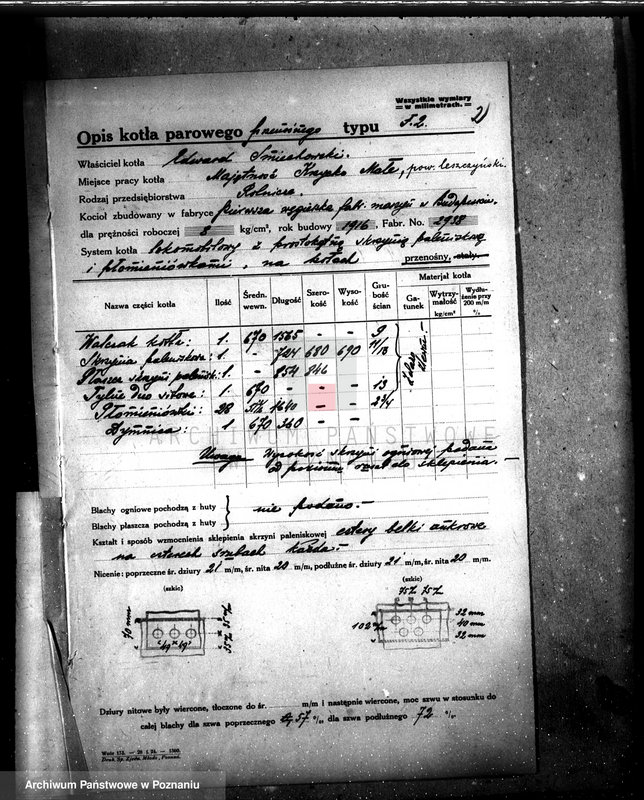 Wszystkie wymiary
w milimetrach.
2)
Opis kotła parowego typu
Właściciel kotła Edward
Miejsce pracy kotła Majętność Krzycko Małe, pow. leszczyński.
Rodzaj przedsiębiorstwa Rolnicze.
Kocioł zbudowany w fabryce Pierwsza węgierska fabr. maszyn w Budapeszcie.
dla prężności roboczej 8 kg/cm², rok budowy 1916, Fabr. No. 2938
System kotła lokomobilowy z prostokątną skrzynią paleniskową
i płomieniówkami, na kołach przenośny, stały.
Materjał kotła
Nazwa części kotła Ilość Średn. wewn. Długość Szerokość Wysokość Grubość ścian Gatunek Wytrzymałość kg/cm² Wydłużenie przy 200 m/m %
Walczak kotła: 1. 670 1565 - - 9
Skrzynia paleniskowa: 1. - 724 680 690 14/18
Płaszcz skrzyni palenisk: 1. - 854 846
Tylne dno sitowe: 1. 670 - - 13
Płomieniówki: 28 1640 - 2¾
Dymnica: 1 670 360
ARCHIWUM PAŃSTWOWE
Uwaga Wysokość skrzyni ogniowej podana
od poziomu rusztu do sklepienia.-
Blachy ogniowe pochodzą z huty
nie podano.-
Blachy płaszcza pochodzą z huty
Kształt i sposób wzmocnienia sklepienia skrzyni paleniskowej cztery belki ankrowe
na czterech śrubach każda.-
Nicenie: poprzeczne śr. dziury 21 m/m, śr. nita 20 m/m, podłużne śr. dziury 21 m/m, śr. nita 20 m/m.
(szkic) (szkic)
70 mm
49 49
32 mm
40 mm
32 mm
Dziury nitowe były wiercone, tłoczone do śr. m/m i następnie wiercone, moc szwu w stosunku do
całej blachy dla szwa poprzecznego 57 %, dla szwa podłużnego 72 %.
Archiwum Państwowe w Poznaniu